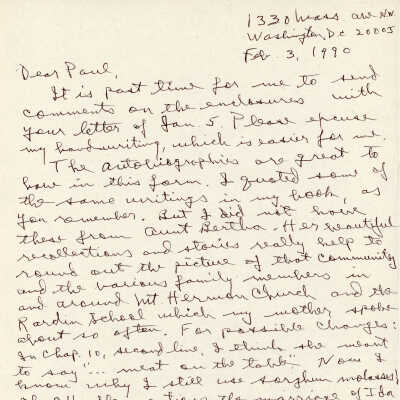 1330 Mass ave N.W.
Washington, D.C. 20005
Feb. 3, 1990
Dear Paul,
It is past time for me to send
comments on the enclosures with
your letter of Jan 5. Please excuse
my handwriting, which is easier for me.
The autobiographies are great to
have in this form. I quoted some of
the same writings in my book, as
you remember. But I did not have
these from Aunt Bertha. Her beautiful
recollections and stories really help to
round out the picture of that community
and the various family members in
and around Mt Hermon Church and the
Rardin School which my mother spoke
about so often. For possible changes:
In Chap. 10, second line, I think she meant
to say "... meat on the table". Now I
know why I still use sorghum molasses!
the marriage of Ida